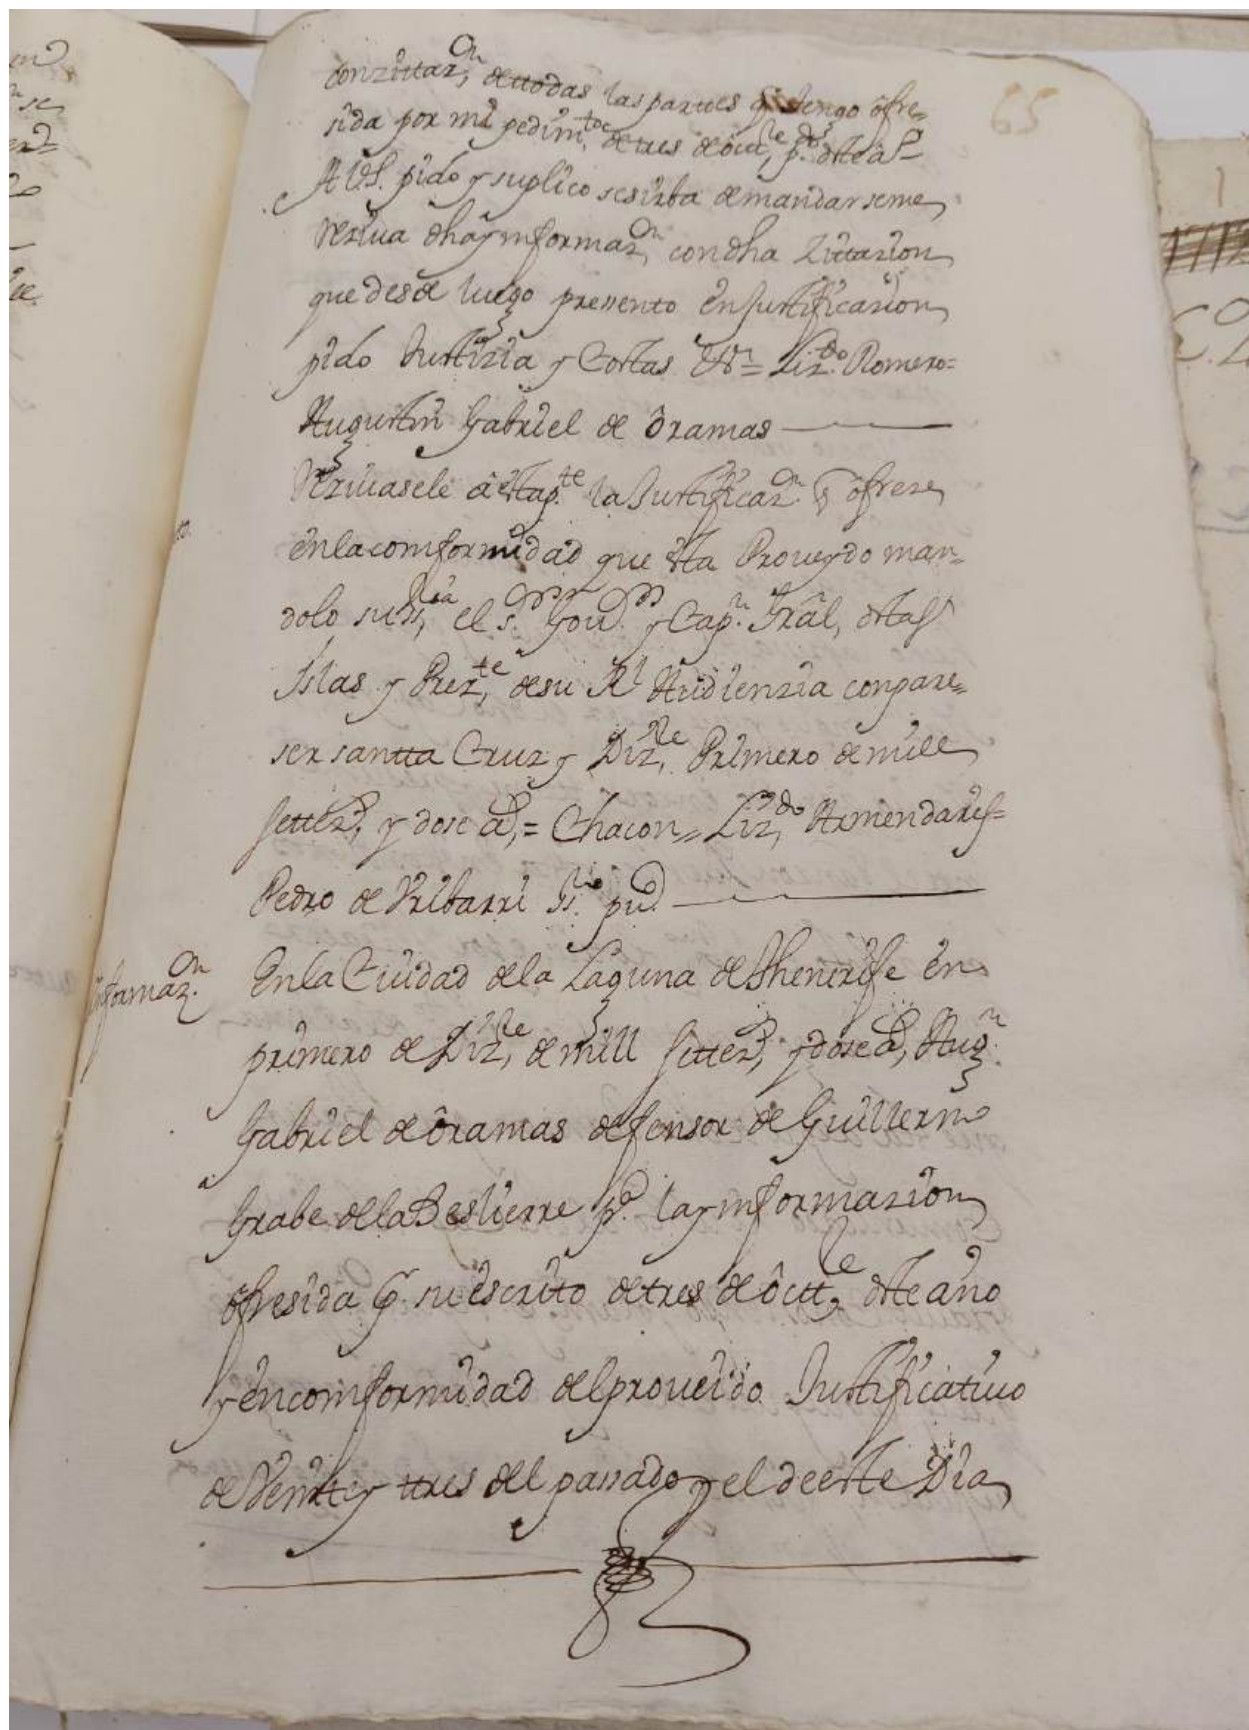 65
conzittaz,on de ttodas las parttes q̃ tengo ofre-
sida por mi pedim,to de tres de octt,re p.do deste aº
A VS. pido y suplico se sirba de mandar se me
Resiua dha ynformaz,on con dha Zittazion
que desde luego pressento en Justificasion
pido Justizia y Costas Vtt= Liz.do Romero=
Augustin Gabriel de Oramas
Resiuasele a esta p.te la Justificaz.on q̃ ofrese
en la comformidad que esta Proueydo man-
dolo su Ss,ria el s.or Gou.or y Cap.n Gral, destas
Islas y Prez,te de su Rl Audienzia con pare-
ser santta Cruz y Diz,re Primero de mill
settez,s y dose as,= Chacon= Liz,do Armendaris=
Pedro de Vribarri ss.no pu.co
Informaz.on
En la Ciudad de la Laguna de Thenerife en
primero de Diz,re de mill settez,s y dose as, Aug.n
Gabriel de Oramas defensor de Guillermo
Grabe de la Beslierre p.a la ynformazion
ofresida p.r su escrito de tres de octt,re deste año
y en comformidad del proueido Justificatiuo
de Veintte y ttres del passado y el de este Dia